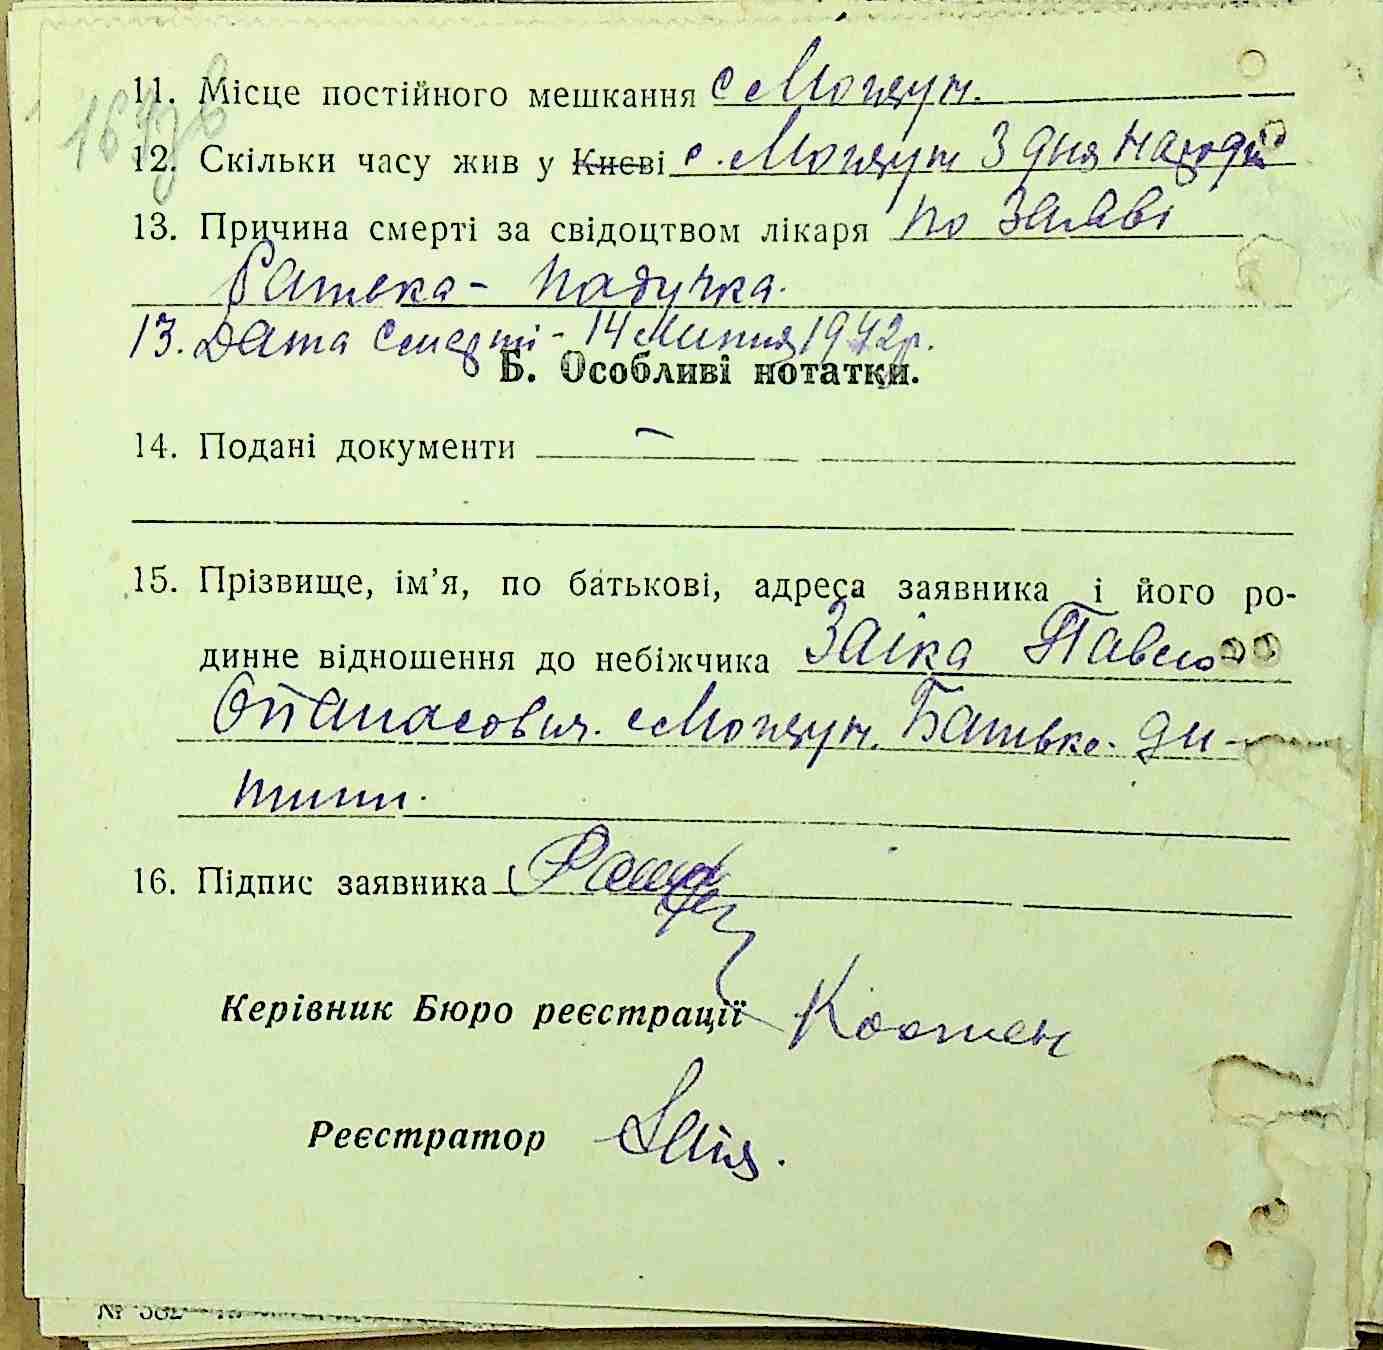 11. Місце постійного мешкання с Мощун.
12. Скільки часу жив у Києві с. Мощун З дня народж
13. Причина смерті за свідоцтвом лікаря по заяві
Батька - падучка.
13. Дата смерті - 14 липня 1942 р.
Б. Особливі нотатки.
14. Подані документи —
15. Прізвище, ім’я, по батькові, адреса заявника і його ро-
динне відношення до небіжчика Заіка Павло
Опанасович. с Мощун. Батько. ди-
тини.
16. Підпис заявника
Керівник Бюро реєстрації
Реєстратор